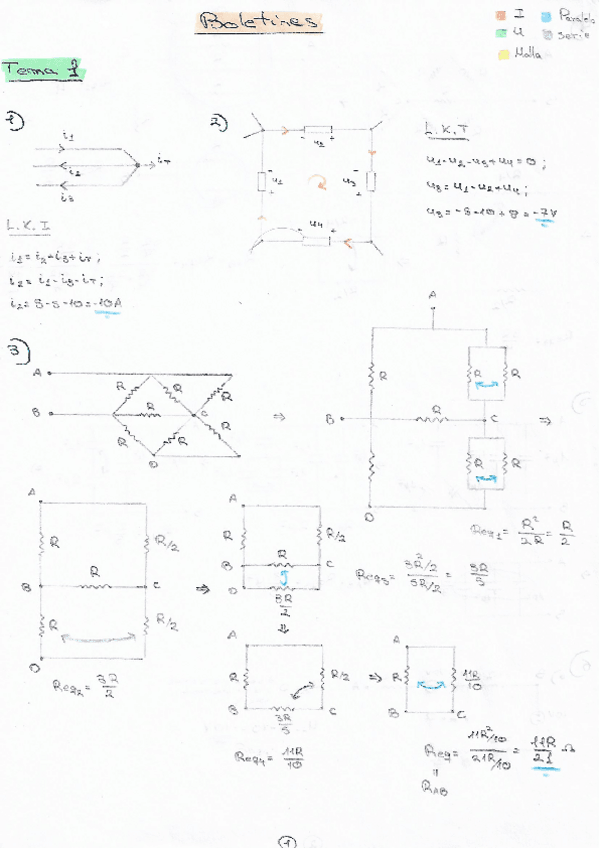 Boletines
I Paralelo
U Serie
Malla
Tema 1
1)
i1
i2
i3
iT
L.K.I
i1 = i2 + i3 + iT;
i2 = i1 - i3 - iT;
i2 = 5 - 5 - 10 = -10A
2)
U2
U1
U3
U4
L.K.T
U1 - U2 - U3 + U4 = 0;
U3 = U1 - U2 + U4;
3)
A
B
C
D
R
R
R
R
R
R
R
⇒
A
B
C
D
R
R
R
R
R
R
⇒
Req1 = R²/2R = R/2
A
B
C
D
R
R/2
R
R
R/2
Req2 = 3R/2
⇒
A
R
R/2
B
R
C
D
3R/2
Req3 = 3R²/2 / 5R/2 = 3R/5
⇓
A
R
R/2
B
C
3R/5
Req4 = 11R/10
⇒
A
R
11R/10
B
C
Req = 11R²/10 / 21R/10 = 11R/21 Ω
=
RAB
1